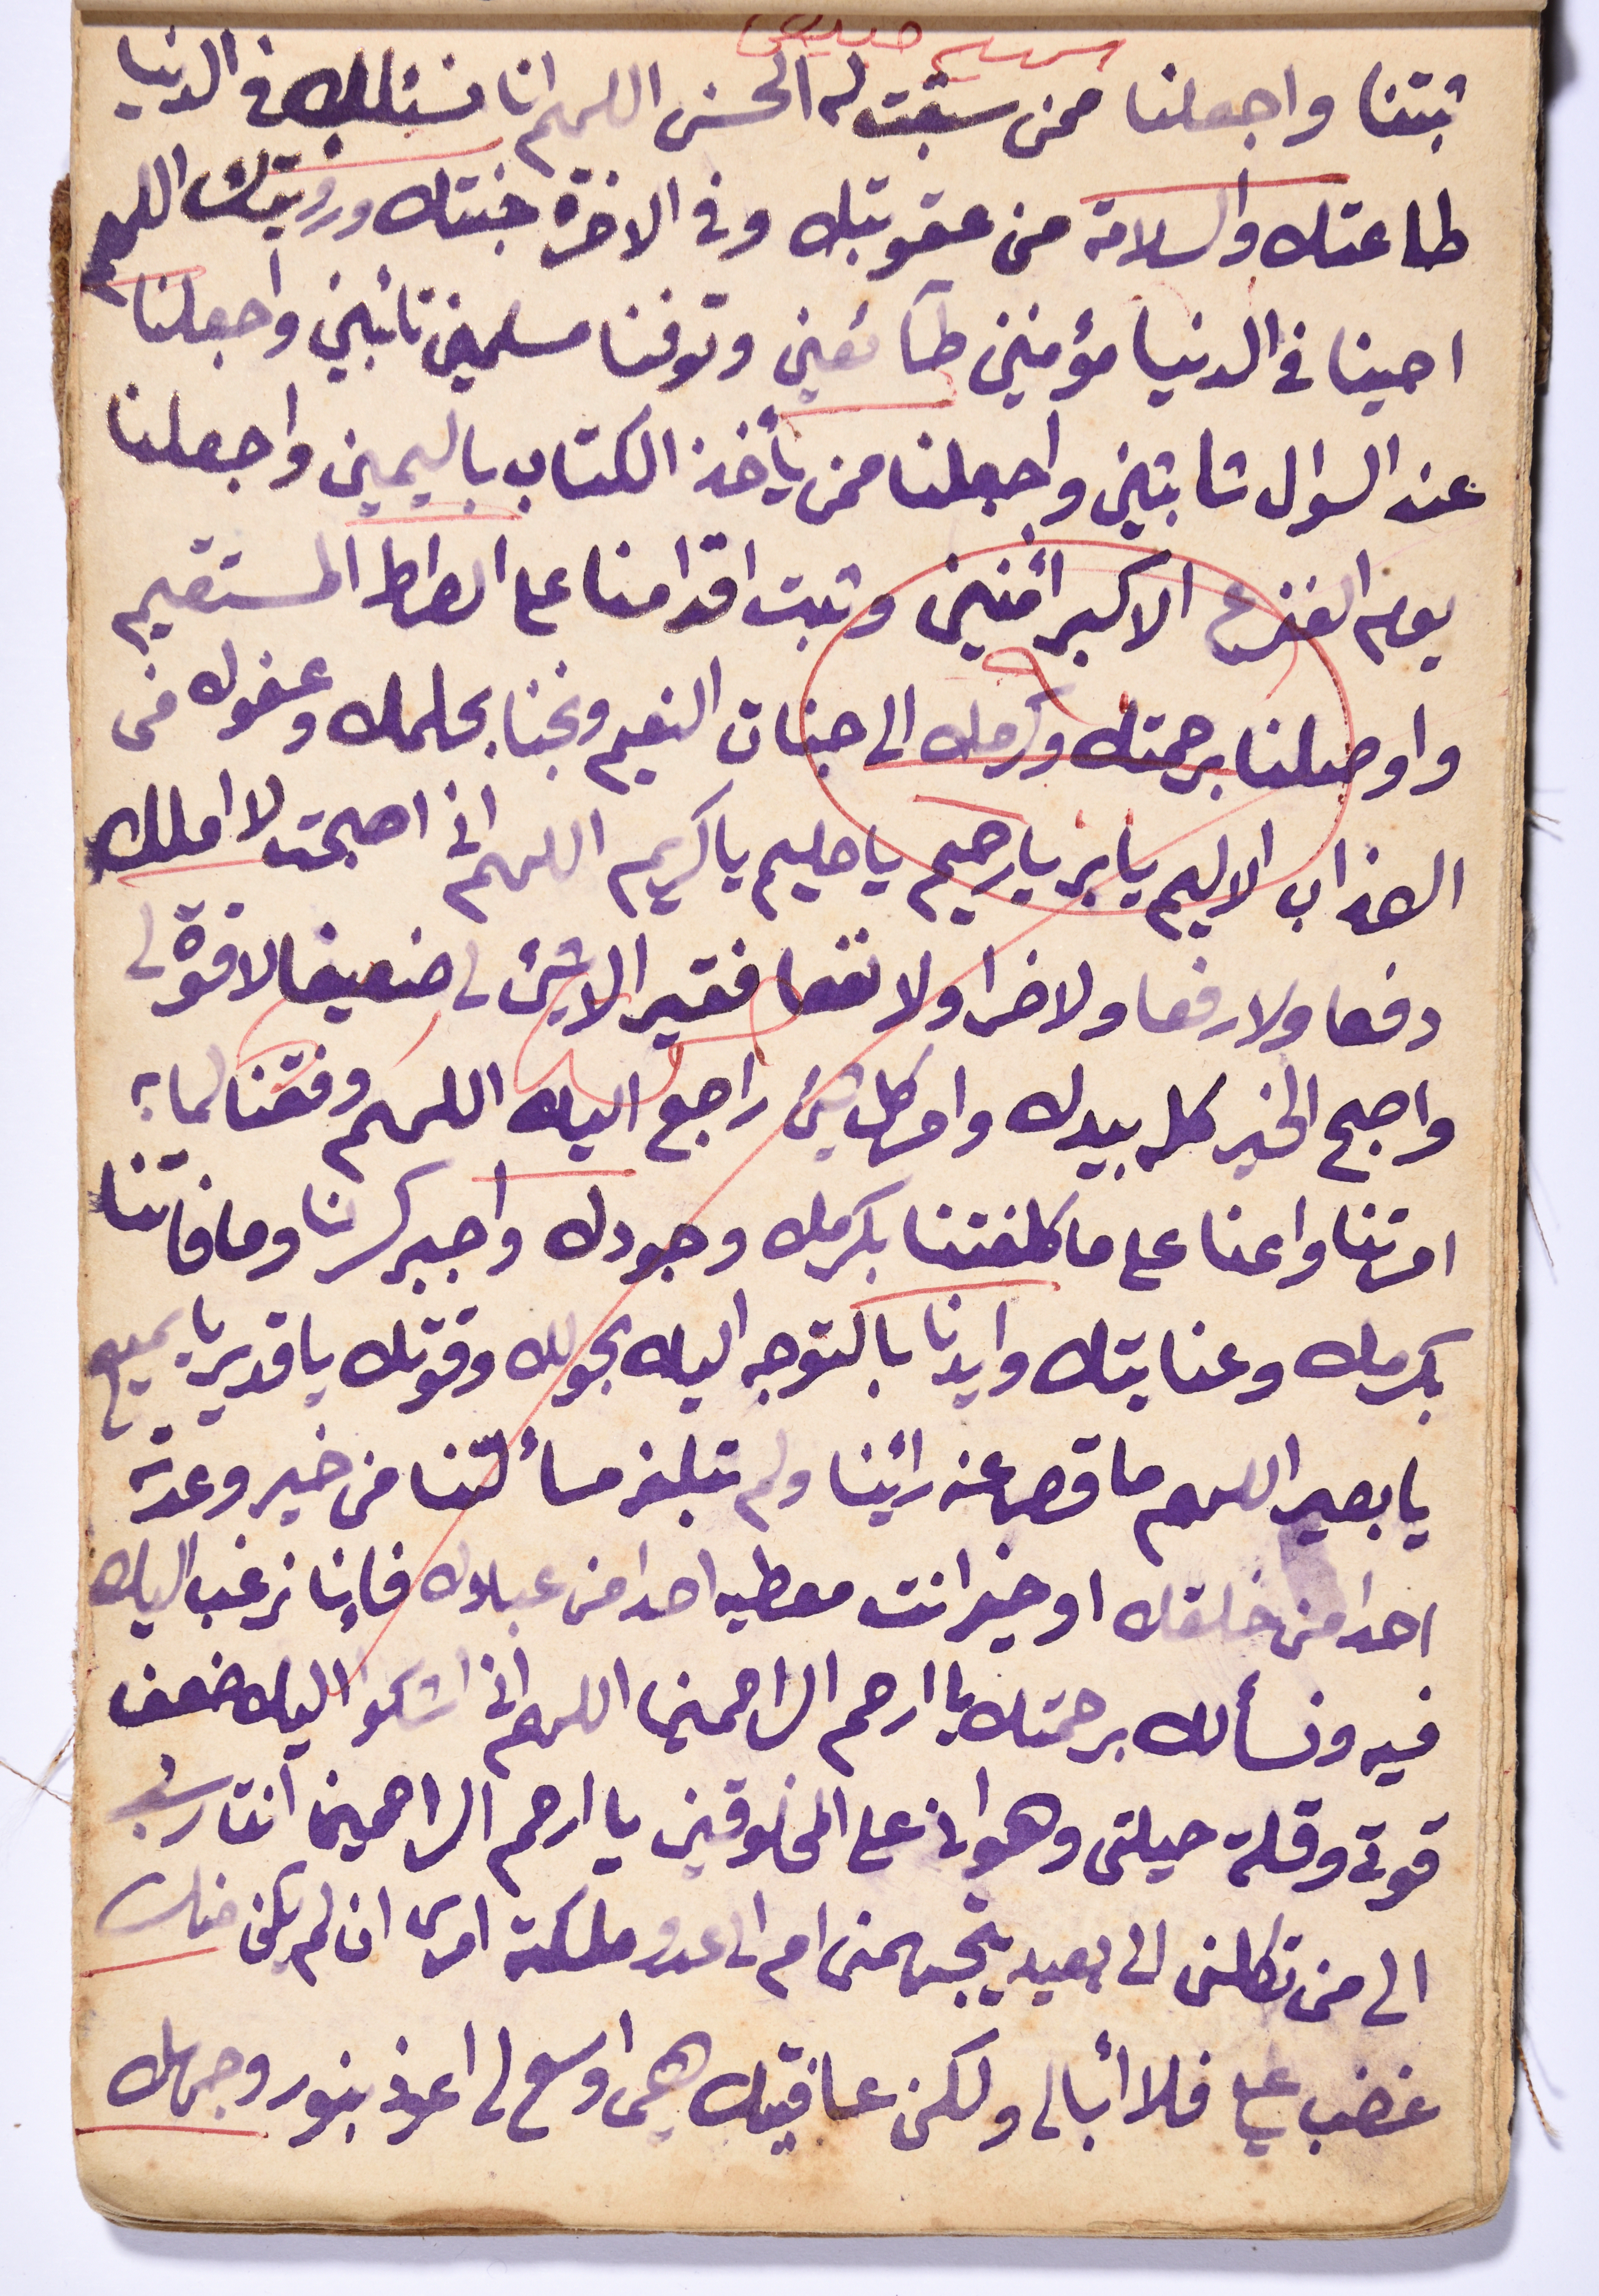 ثبتنا واجعلنا ممن سبقت له الحسنى اللهم انا نسئلك فى الدنيا
طاعتك والسلامة من عقوبتك وفى الاخرة جنتك ورؤيتك اللهم
احينا فى الدنيا مؤمنين طائعين وتوفنا مسلمين تائبين واجعلنا
عند السؤال ثابتين واجعلنا ممن يأخذ الكتاب باليمين واجعلنا
يوم الفزع الاكبر اٰمنين وثبت اقدامنا على الصراط المستقيم
واوصلنا برحمتك وكرمك الى جنات النعيم ونجنا بحلمك وعفوك من
العذاب الاليم يا بر يا رحيم يا حليم يا كريم اللهم انى اصبحت لا املك
دفعا ولا رفعا ولا ضرا ولا نفعا فقيرا لا شئ لى ضعيفا لا قوة لى
واصبح الخير كله بيدك وامر كل شئ راجع اليك اللهم وفقنا لما
امرتنا واعنا على ما كلفتنا بكرمك وجودك واجبر كسرنا وما فاتنا
بكرمك وعنايتك وايدنا بالتوجه اليك بحولك وقوتك يا قدير يا سميع
يا بصير اللهم ما قصر عنه رائينا ولم تبلغه مسألتنا من خير وعدته
احدا من خلقك او خير انت معطيه احدا من عبادك فإنا نرغب اليك
فيه ونسألك برحمتك يا ارحم الراحمين اللهم انى اشكوا اليك ضعف
قوتى وقلة حيلتى وهوانى على المخلوقين يا ارحم الراحمين انت ربى
الى من تكلنى الى بعيد يتجهمنى ام الى عدو ملكته امرى ان لم يكن منك
غضب علي فلا أبالى ولكن عافيتك هى اوسع لى اعوذ بنور وجهك